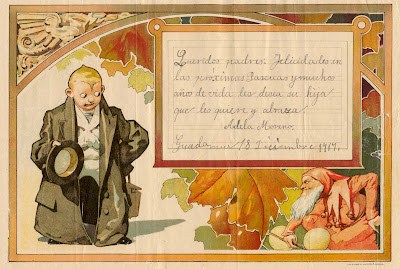 Queridos padres: Felicidades en
las proximas Pascuas y muchos
años de vida les desea su hija
que les quiere y abraza.
Adela Moreno
18 Diciembre 1917.